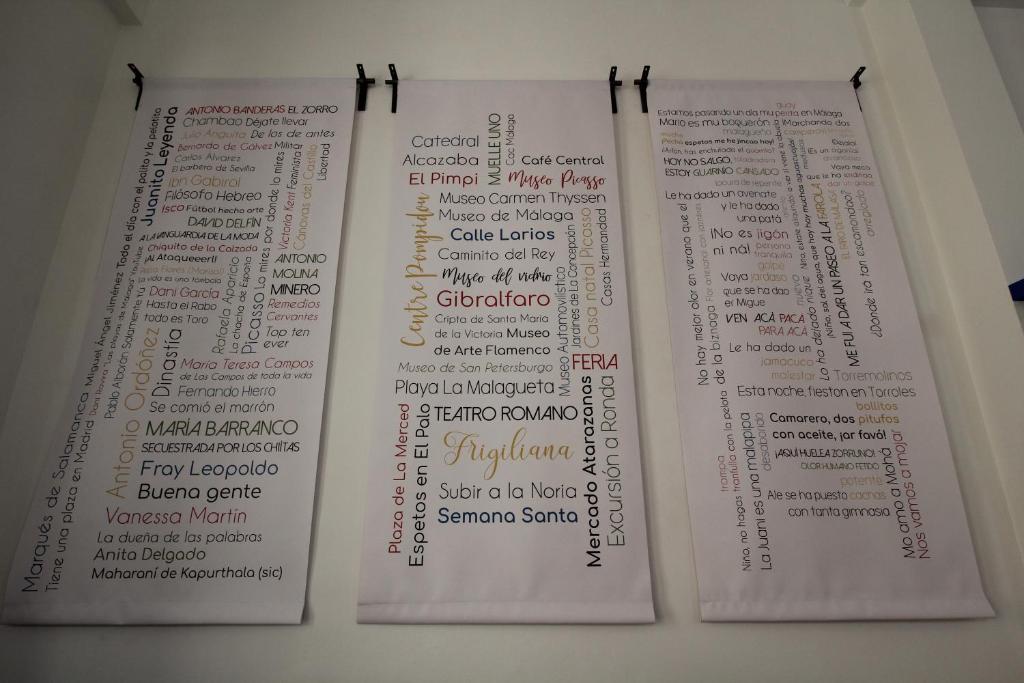 ANTONIO BANDERAS EL ZORRO
Chambao Déjate llevar
Julio Anguita De los de antes
Bernardo de Gálvez Militar
Carlos Álvarez
El barbero de Sevilla
Ibn Gabirol
Filósofo Hebreo
Isco Fútbol hecho arte
DAVID DELFÍN
A LA VANGUARDIA DE LA MODA
Chiquito de la Calzada
¡Al Ataqueeerl!
Pepa Flores (Marisol)
la vida es una tómbola
Dani García
Hasta el Rabo
todo es Toro
Juanito Leyenda
Todo el día con el palito y la pelotita
Miguel Ángel Jiménez
Marqués de Salamanca
Tiene una plaza en Madrid
Pablo Alborán Solamente tú
Antonio Ordóñez
Dinastía
Rafaela Aparicio
La chacha de España
Picasso La mires por donde la mires
Victoria Kent Feminista
Cánovas del Castillo
Libertad
ANTONIO
MOLINA
MINERO
Remedios
Cervantes
Top ten
ever
María Teresa Campos
de Las Campos de toda la vida
Fernando Hierro
Se comió el marrón
MARÍA BARRANCO
SECUESTRADA POR LOS CHIÍTAS
Fray Leopoldo
Buena gente
Vanessa Martín
La dueña de las palabras
Anita Delgado
Maharaní de Kapurthala (sic)
Catedral
Alcazaba
El Pimpi
MUELLE UNO
Cac Málaga
Café Central
Museo Picasso
Museo Carmen Thyssen
Museo de Málaga
Calle Larios
Caminito del Rey
Museo del vidrio
Gibralfaro
Centre Pompidou
Cripta de Santa María
de la Victoria Museo
de Arte Flamenco
Museo de San Petersburgo
Museo Automovilístico
Jardines de La Concepción
Casa natal Picasso
Casas Hermandad
FERIA
Playa La Malagueta
TEATRO ROMANO
Frigiliana
Subir a la Noria
Semana Santa
Plaza de La Merced
Espetos en El Palo
Mercado Atarazanas
Excursión a Ronda
guay
Estamos pasando un día mu perita en Málaga
Mario es mu boquerón
malagueño
¡Marchando dos
HOY NO SALGO,
ESTOY GUARNÍO CANSADO
Le ha dado un avenate
locura de repente
y le ha dado
una patá
¡No es jigón
ni ná!
persona
tranquila
golpe
Vaya jardaso
que se ha dao
er Migue
VEN ACÁ PACÁ
PARA ACÁ
Le ha dado un
jamacuco
malestar
No hay mejor olor en verano que el
de la biznaga
Lo ha dejado nique
nuevo
ME FUI A DAR UN PASEO A LA FAROLA
¿Donde irá tan escamondao?
arreglado
Torremolinos
Esta noche, fieston en Torroles
bollitos
Camarero, dos pitufos
con aceite, ¡ar favó!
¡AQUÍ HUELE A ZORRUNO!
OLOR HUMANO FÉTIDO
potente
Ale se ha puesto cachas
con tanta gimnasia
trompa
Nino, no hagas tranfulla con la pelota
La Juani es una malapipa
desaboría
Mo amo a Mohá
Nos vamos a mojar